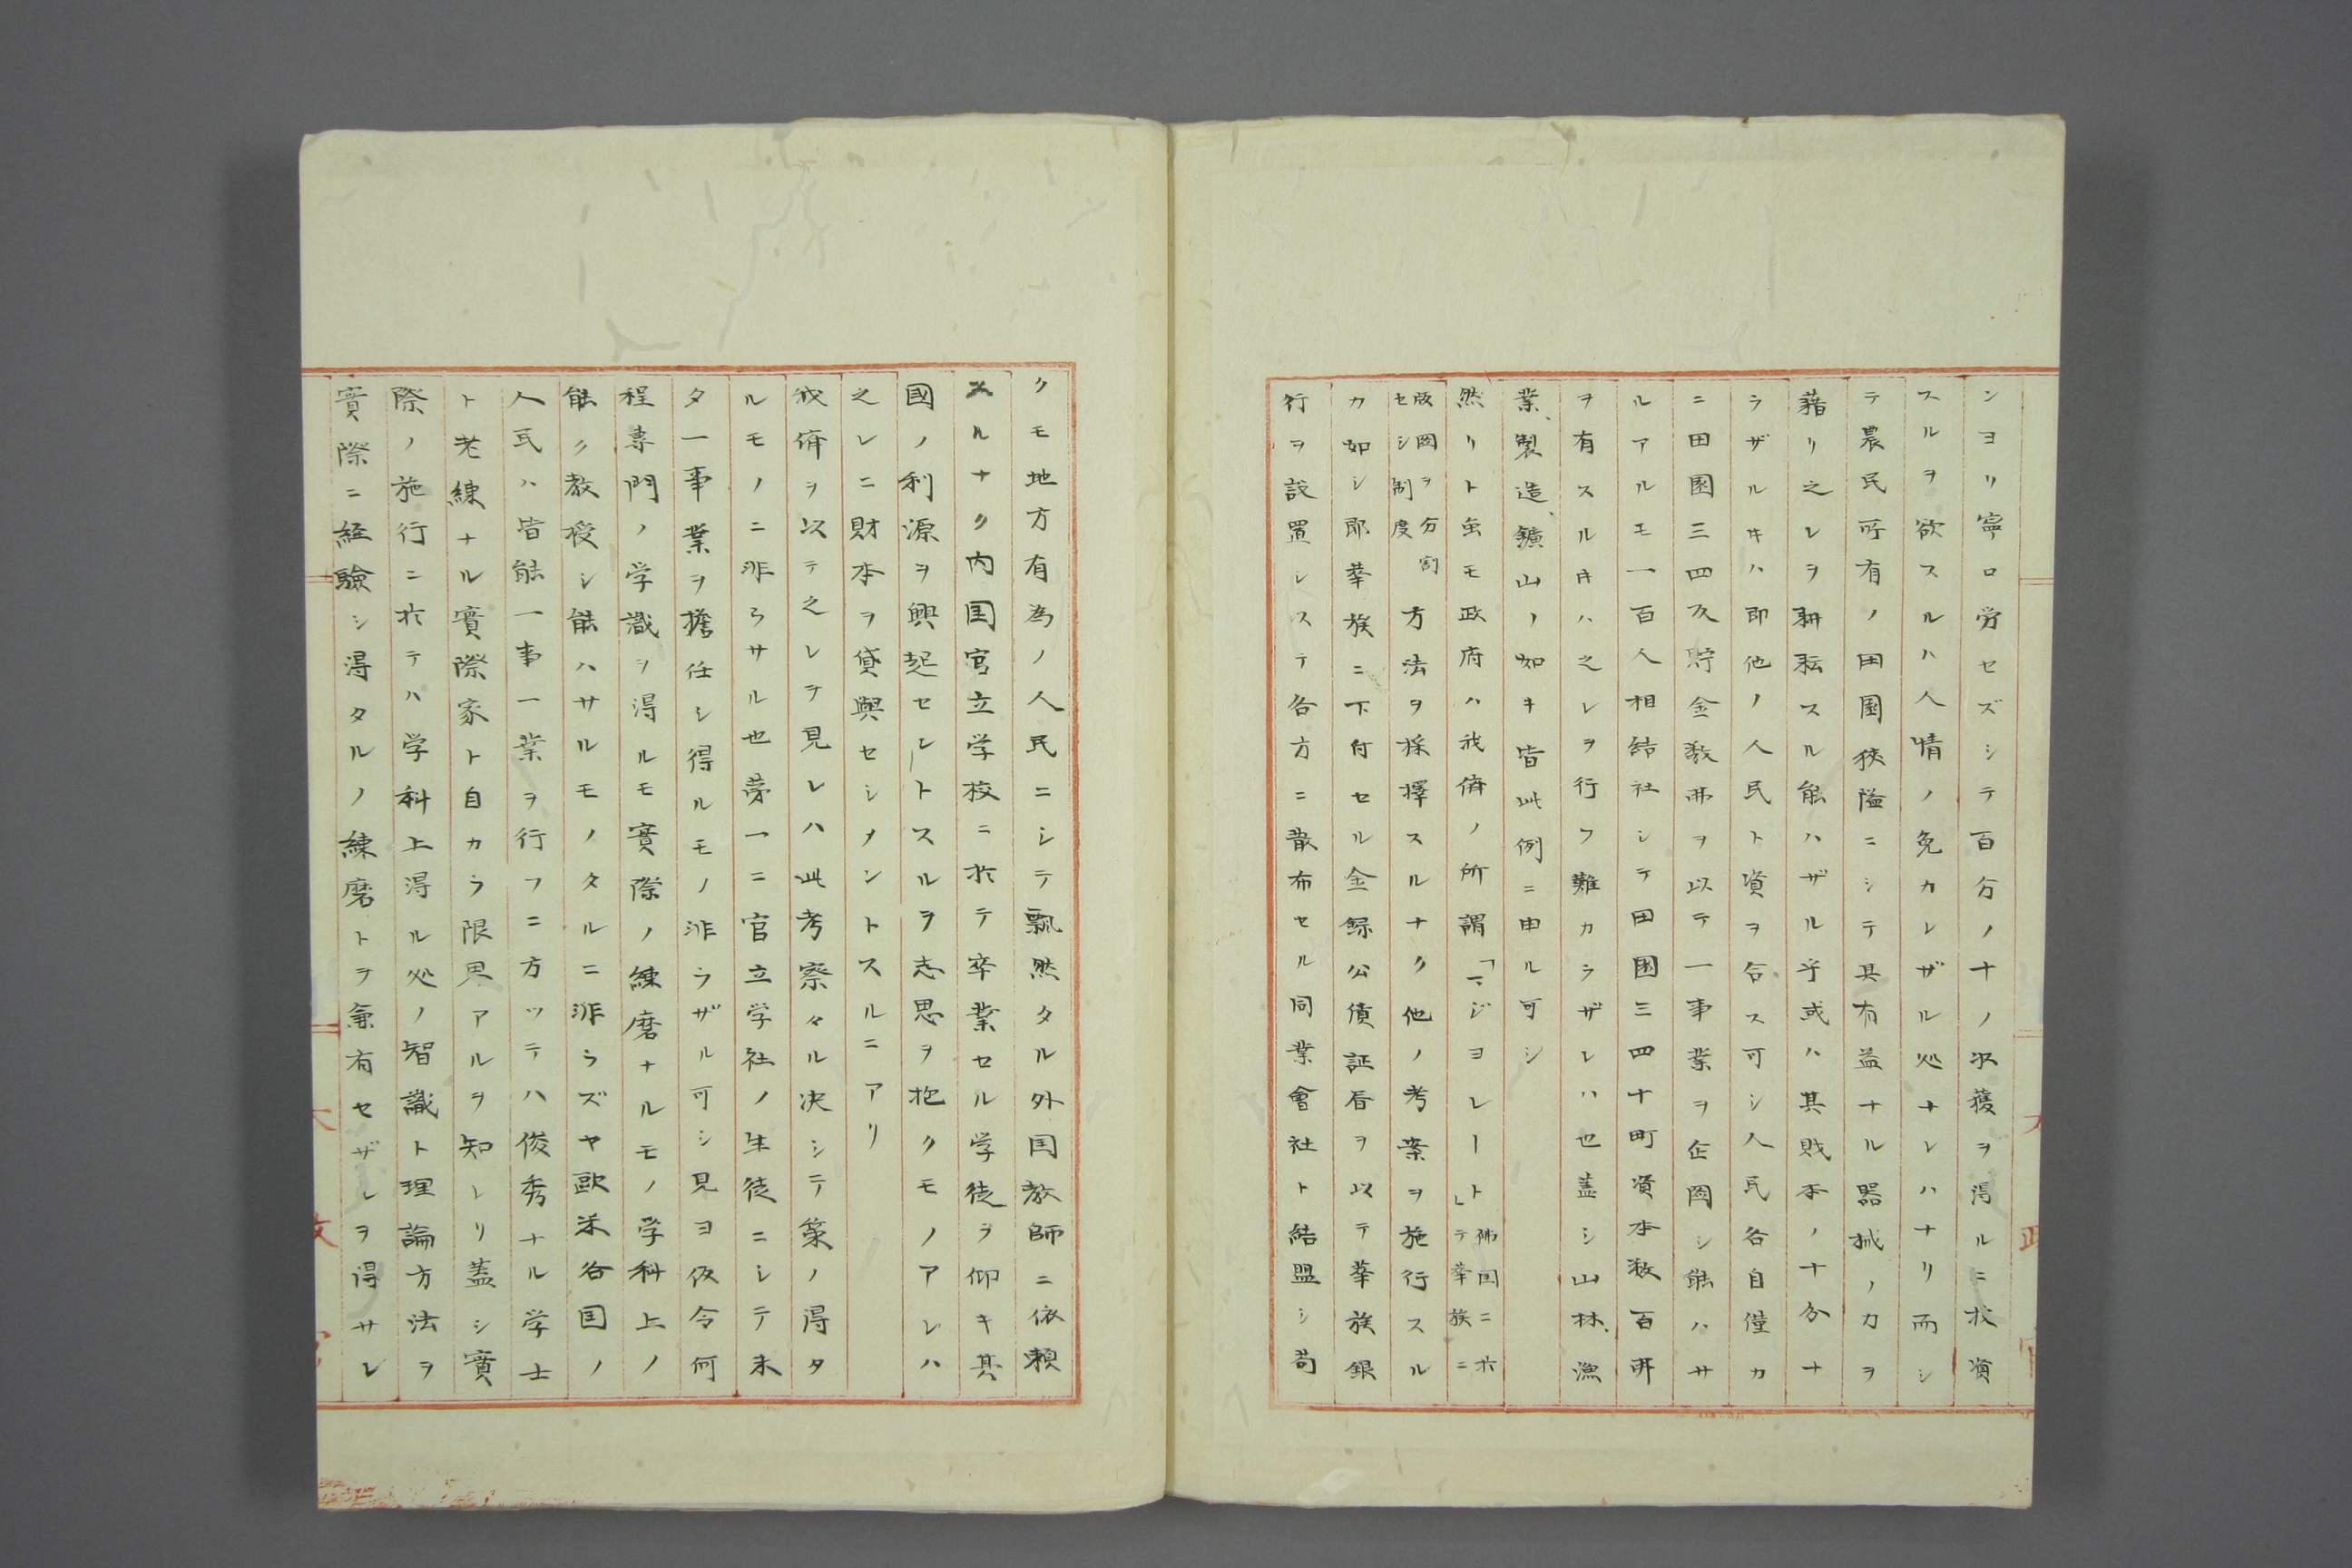 ンヨリ寧ロ労セズシテ百分ノ十ノ収獲ヲ得ルニ投資
スルヲ欲スルハ人情ノ免カレザル処ナレハナリ而シ
テ農民所有ノ田園狹隘ニシテ其有益ナル器械ノカヲ
藉リ之レヲ耕耘スル能ハザル乎或ハ其財本ノ十分ナ
ラザルキハ即他ノ人民ト資ヲ合ス可シ人民各自僅カ
ニ田園三四反貯金数円ヲ以テ一事業ヲ企圖シ能ハサ
ルアルモ一百人相結社シテ田園三四十町資本数百円
ヲ有スルキハ之レヲ行フ難カラザレハ也蓋シ山林、漁
業、製造、鑛山ノ如キ皆此例ニ由ル可シ
然リト虽モ政府ハ我儕ノ所謂「マジヨレート」佛国ニ於テ華族ニ
版圖ヲ分割セシ制度方法ヲ採擇スルナク他ノ考案ヲ施行スル
カ如シ耶華族ニ下付セル金録公債証書ヲ以テ華族銀
行ヲ設置システ各方ニ散布セル同業會社ト結盟シ苟
クモ地方有為ノ人民ニシテ飄然タル外国教師ニ依頼
スルナク内国官立学校ニ於テ卒業セル学徒ヲ仰キ其
國ノ利源ヲ興起セシトスルヲ志思ヲ抱クモノアレハ
之レニ財本ヲ貸與セシメントスルニアリ
我儕ヲ以テ之レヲ見レハ此考察々ル决シテ策ノ得タ
ルモノニ非ラサル也第一ニ官立学社ノ生徒ニシテ未
タ一事業ヲ擔任シ得ルモノ非ラザル可シ見ヨ仮令何
程専門ノ学識ヲ得ルモ實際ノ練磨ナルモノ学科上ノ
能ク教授シ能ハサルモノタルニ非ラズヤ歐米各国ノ
人民ハ皆能一事一業ヲ行フニ方ツテハ俊秀ナル学士
ト老練ナル實際家ト自カラ限界アルヲ知レリ蓋シ實
際ノ施行ニ於テハ学科上得ル処ノ智識ト理論方法ヲ
實際ニ経驗シ得タルノ練磨トヲ兼有セザレヲ得サレ